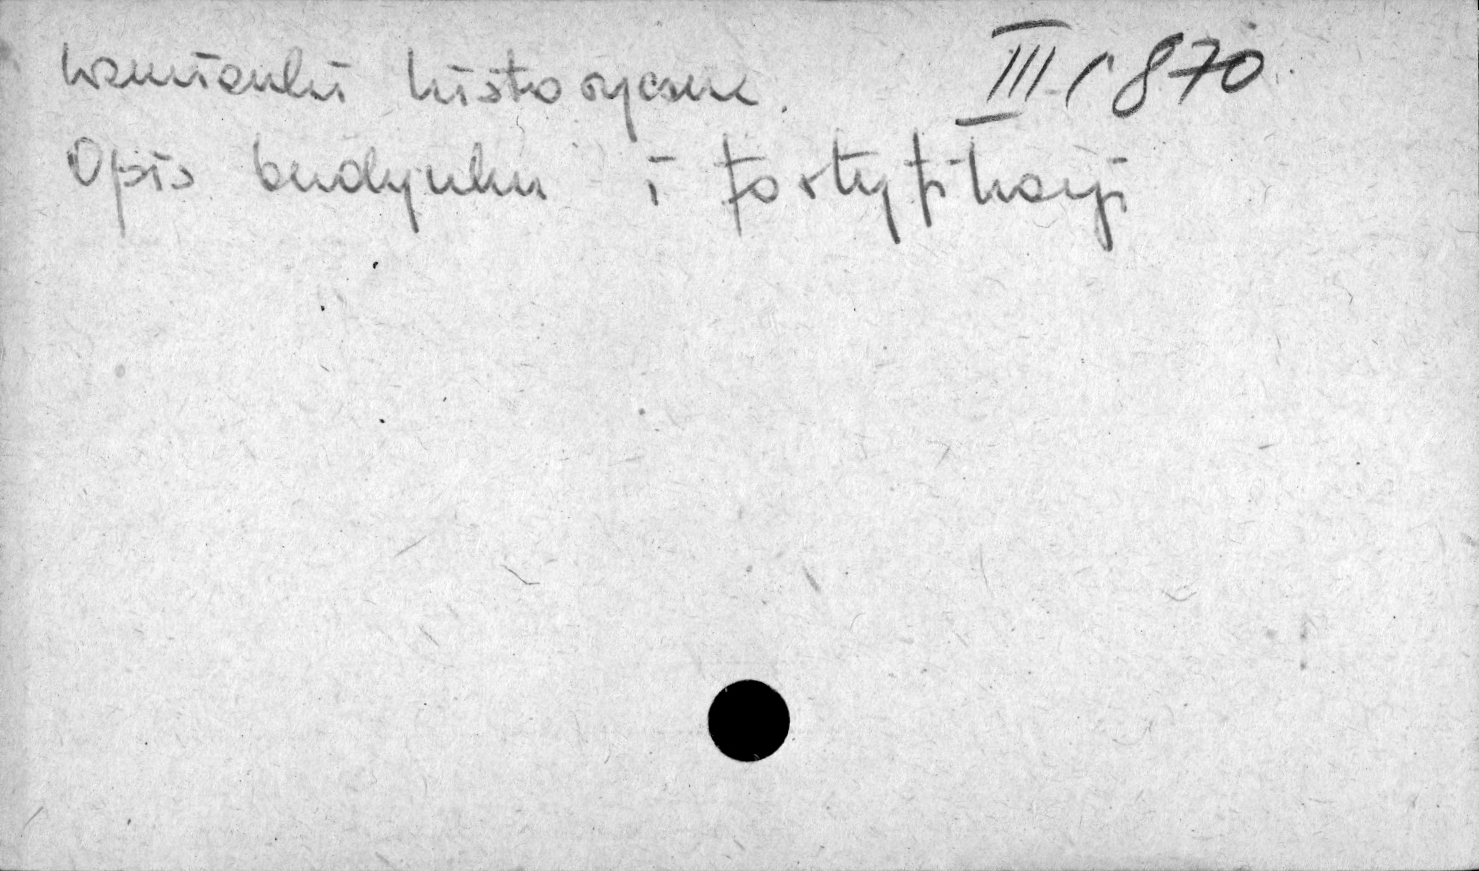 Wzmianki historyczne. III / 870
Opis budynku i fortyfikacji